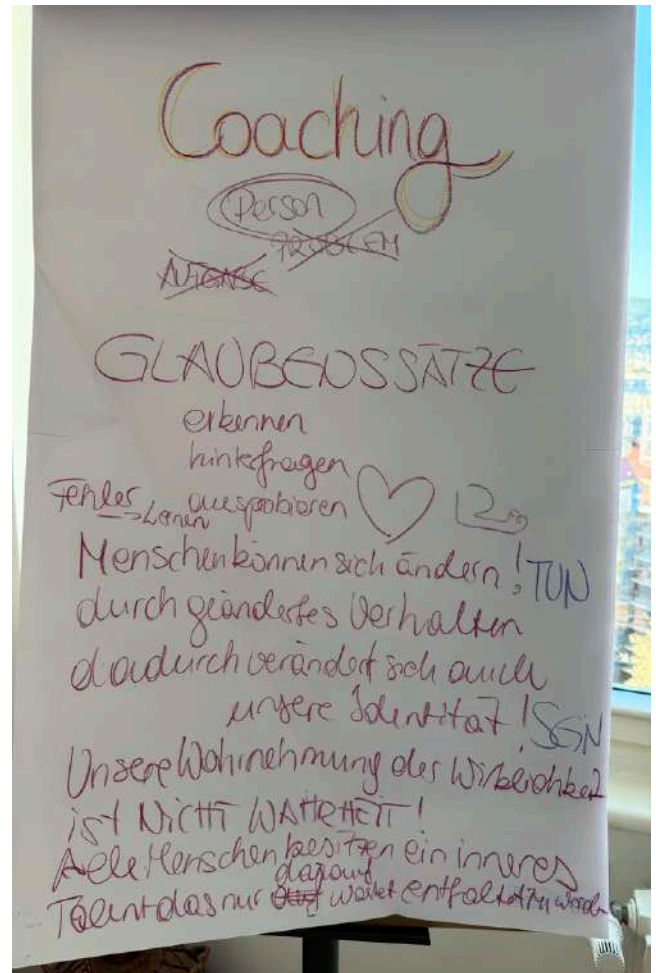 Coaching
Person
PROBLEM
GLAUBENSSÄTZE
erkennen
hinterfragen
Fehler ausprobieren
→ Lernen
Menschen können sich ändern! TUN
durch geändertes Verhalten
dadurch verändert sich auch
unsere Identität! SEIN
Unsere Wahrnehmung der Wirklichkeit
ist NICHT WAHRHEIT!
Alle Menschen besitzen ein inneres
darauf
Talent das nur wartet entfaltet zu werden